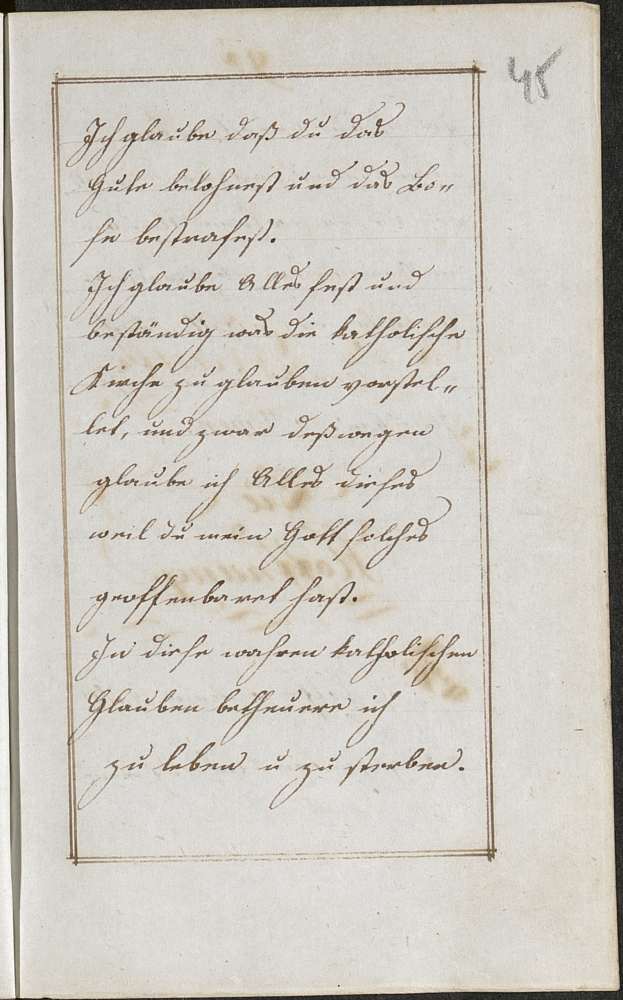 45
Ich glaube daß du das
Gute belohnest und das Bo„
se bestrafest.
Ich glaube Alles fest und
beständig was die katholische
Kirche zu glauben vorstel„
let, und zwar deßwegen
glaube ich Alles dieses
weil du mein Gott solches
geoffenbaret hast.
In diese wahren katholischen
Glauben betheuere ich
zu leben u zu sterben.